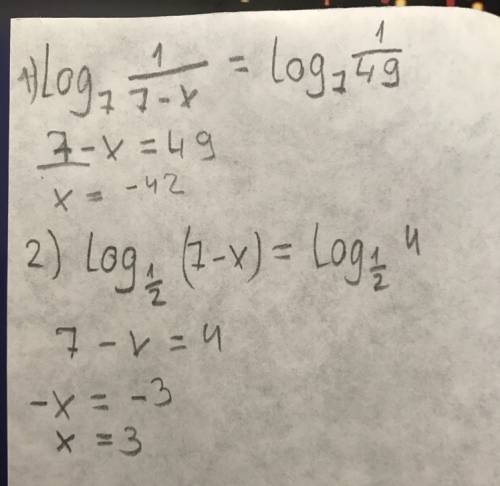 1) log_7 1/(7-x) = log_7 1/49
7-x = 49
x = -42
2) log_{1/2} (7-x) = log_{1/2} 4
7-x = 4
-x = -3
x = 3